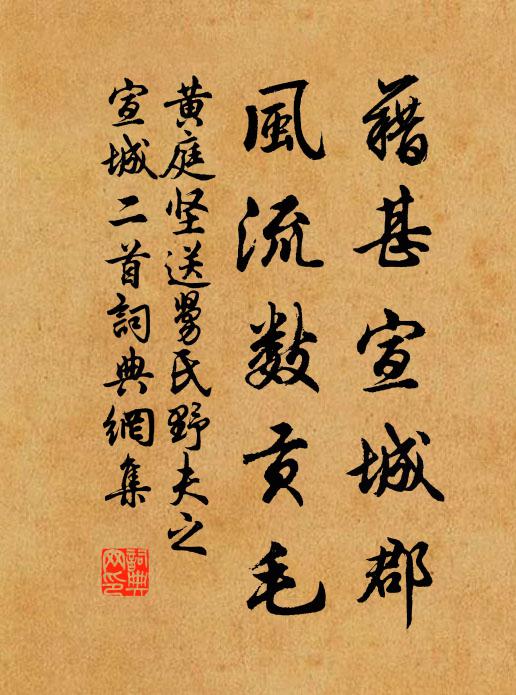 藉甚宣城郡
風流數貢毛
黄庭坚送舅氏野夫之
宣城二首詞典網集
詞典網印